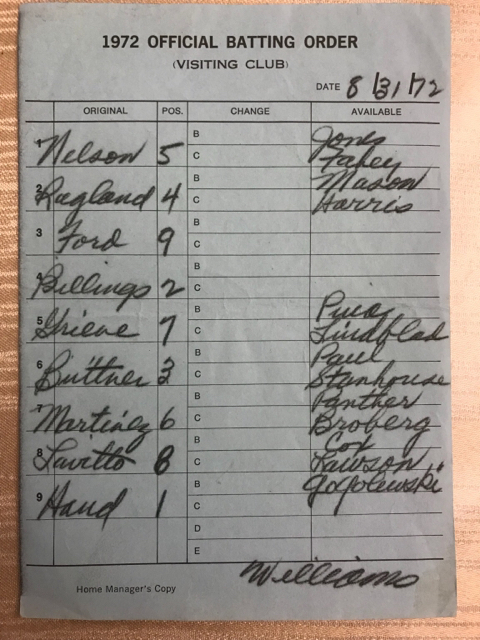 1972 OFFICIAL BATTING ORDER
(VISITING CLUB)
DATE 8/31/72
ORIGINAL POS. CHANGE AVAILABLE
1 Nelson 5 B Jones
C Fahey
2 Ragland 4 B Mason
C Harris
3 Ford 9 B
C
4 Billings 2 B
C
5 Grieve 7 B Pina
C Lindblad
6 Biittner 3 B Paul
C Stanhouse
7 Martinez 6 B Panther
C Broberg
8 Lovitto 8 B Cox
C Lawson
9 Hand 1 B Gogolewski
C
D
E
Williams
Home Manager's Copy